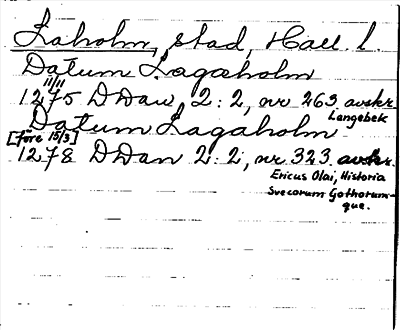 Laholm, stad, Hall. l.
Datum Lagaholm
11/11
1275 DDan 2:2, nr 263 avskr.
Langebek
Datum Lagaholm
[före 15/3]
1278 DDan 2:2, nr 323 avskr.
Ericus Olai, Historia
Svecorum Gothorum-
que.